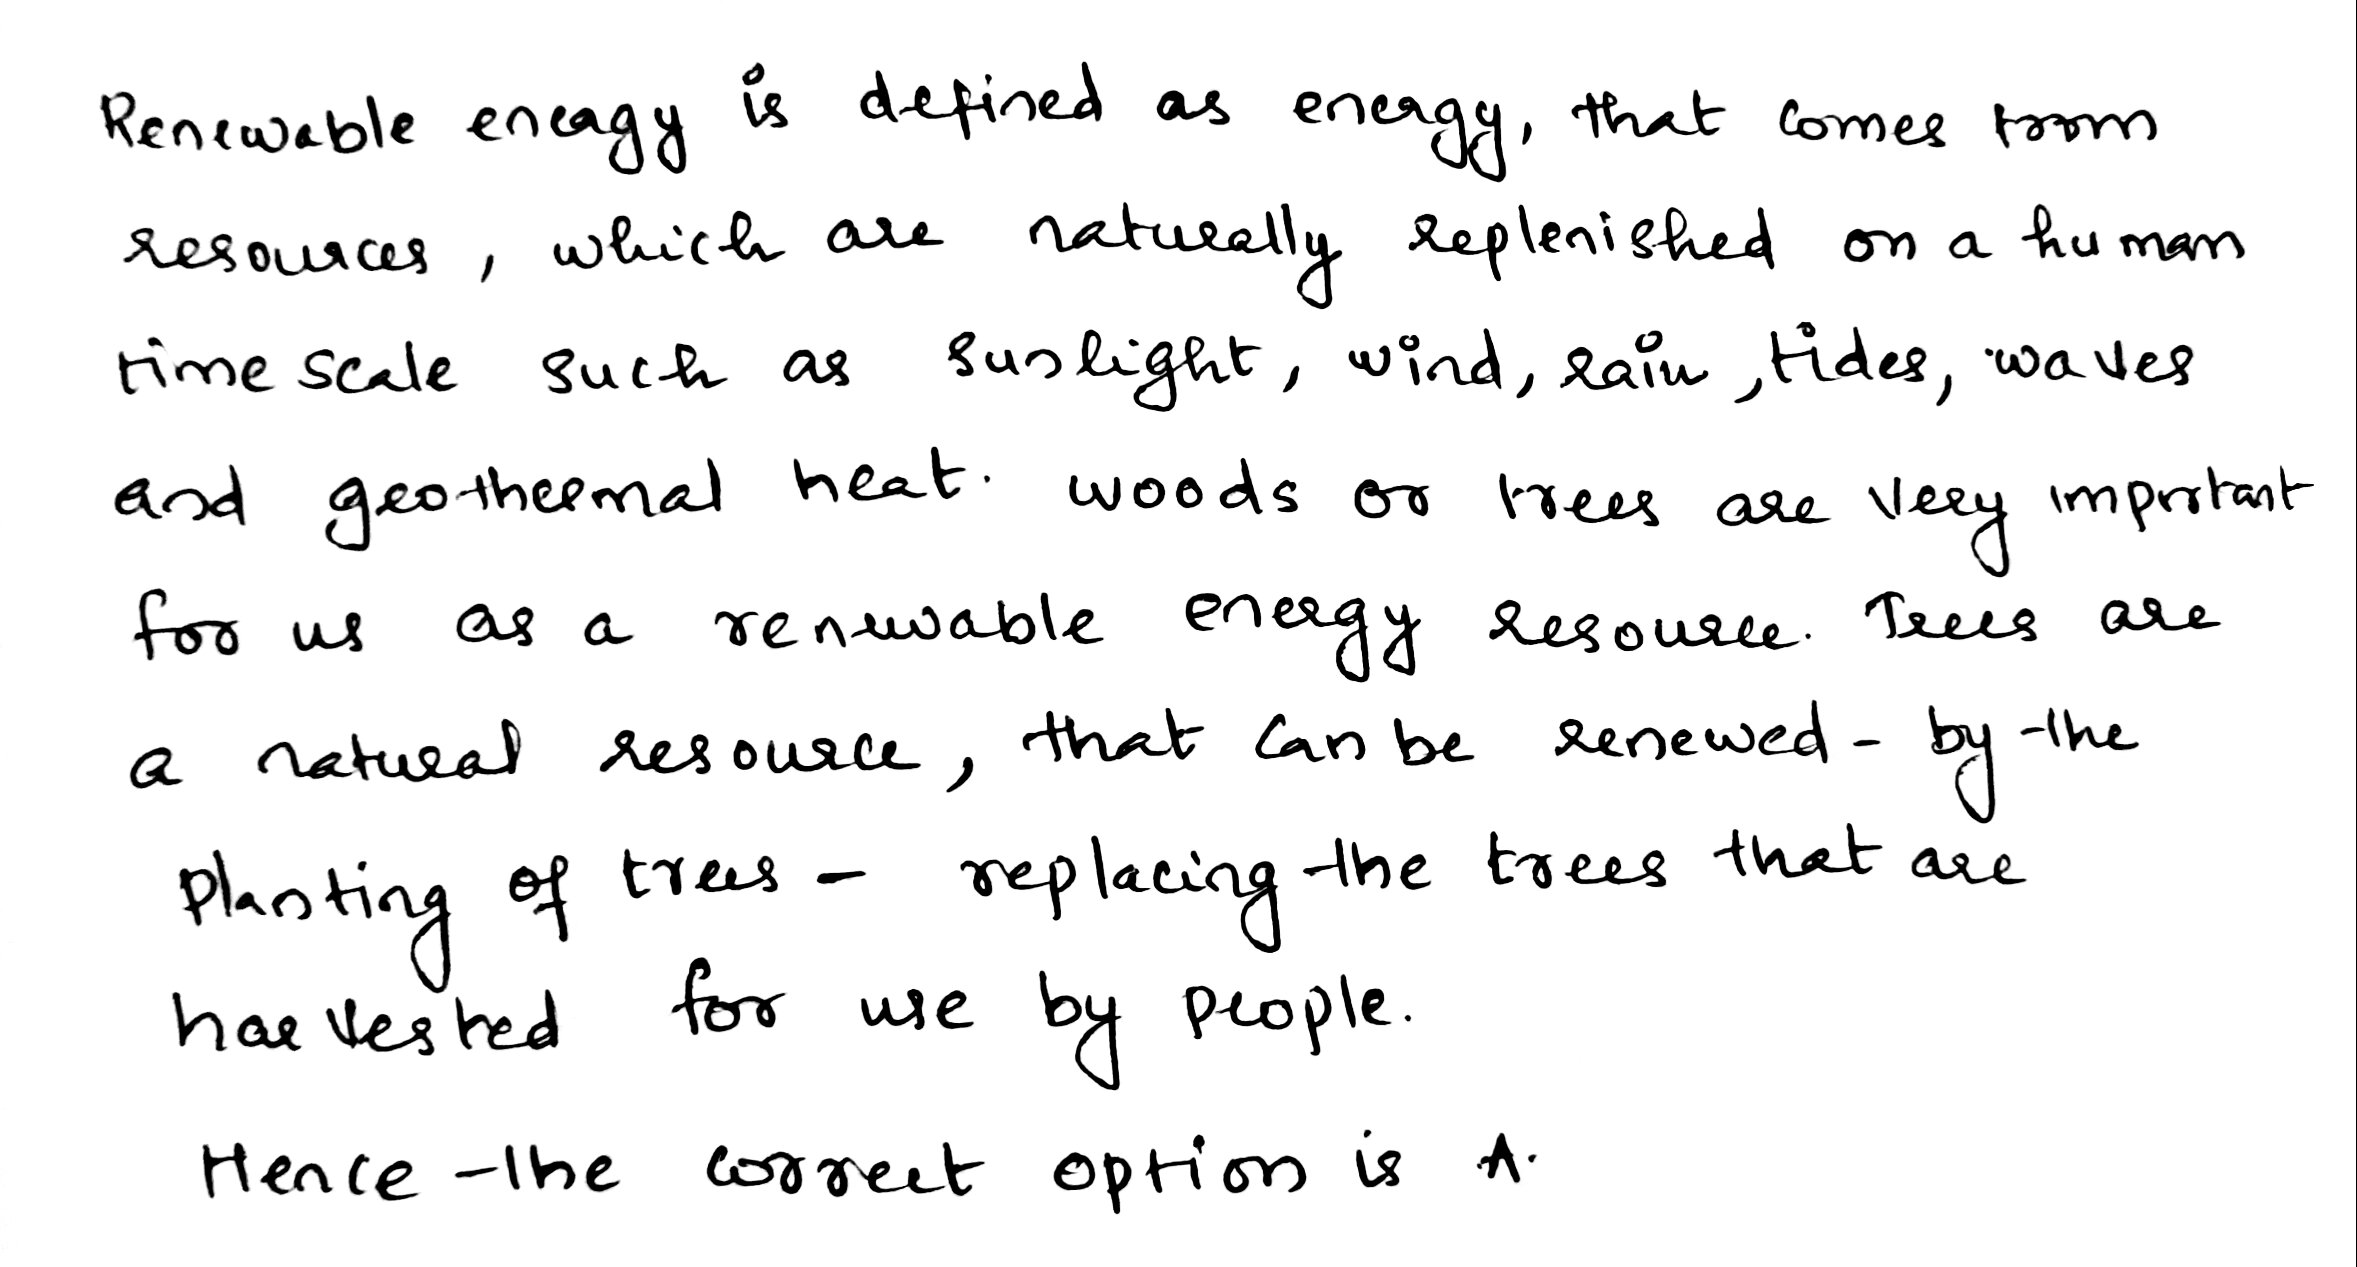 Renewable energy is defined as energy, that comes from
resources, which are naturally replenished on a human
time scale such as sunlight, wind, rain, tides, waves
and geothermal heat. woods or trees are very important
for us as a renewable energy resource. Trees are
a natural resource, that can be renewed - by the
planting of trees - replacing the trees that are
harvested for use by people.
Hence the correct option is A.